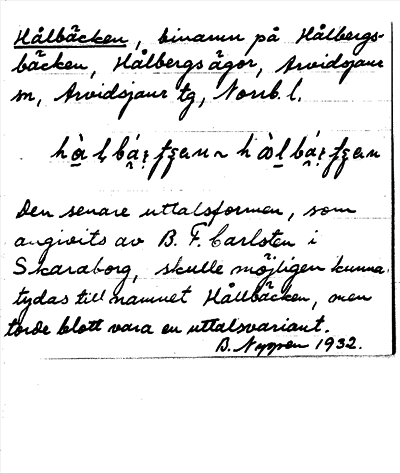 Hålbäcken, binamn på Hålbergs-
bäcken, Hålbergs ägor, Arvidsjaur
sn, Arvidsjaur tg, Norrb. l.
Den senare uttalsformen, som
angivits av B. F. Carlsten i
Skaraborg, skulle möjligen kunna
tydas till namnet Hållbäcken, men
torde blott vara en uttalsvariant.
B. Nygren 1932.